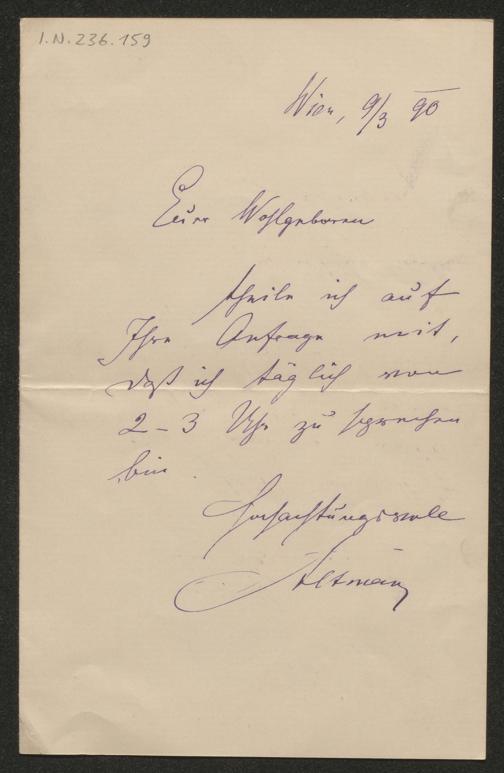 I.N. 236.159
Wien, 9/3 90
Euer Wohlgeboren
theile ich auf
Ihre Anfrage mit,
daß ich täglich von
2 – 3 Uhr zu sprechen
bin.
Hochachtungsvoll
Altmann